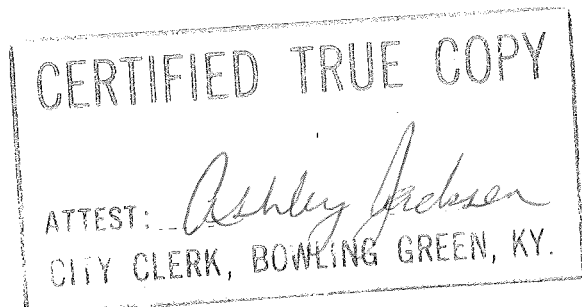 CERTIFIED TRUE COPY
ATTEST: Ashley Jackson
CITY CLERK, BOWLING GREEN, KY.